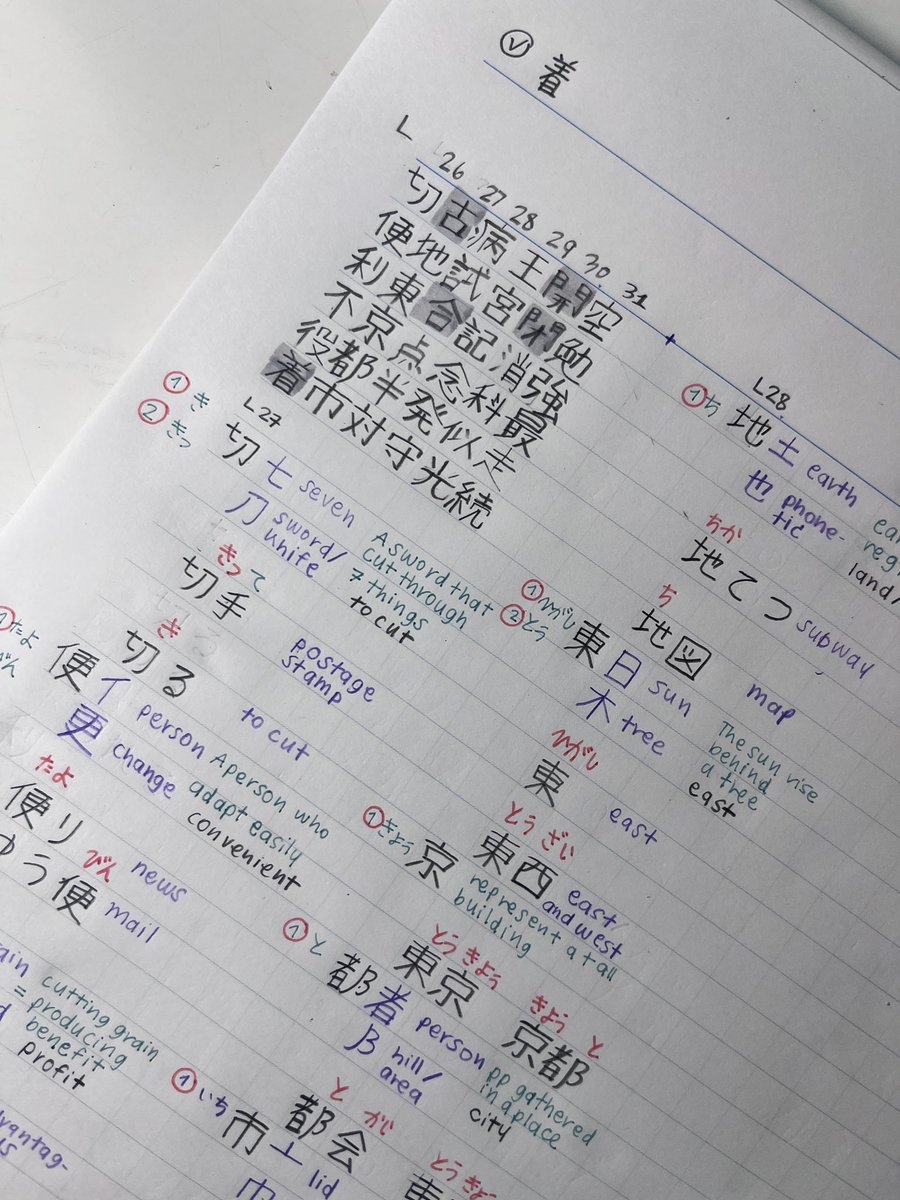 Ⓥ 着
L 26 27 28 29 30 31
切古病王開空
便地試宮閉勉
利東合記消強
不京点念科最
役都半発似走
着市対守光続
L27
① き
② きっ
切 七 seven
刀 sword/
knife
A sword that
cut through
7 things
to cut
きっ て
切手
postage
stamp
き
切る
to cut
① たよ
びん
便 イ person
更 change
A person who
adapt easily
convenient
たよ
便り
news
びん
ゆう便
mail
cutting grain
= producing
benefit
profit
L28
① ち
地 土 earth
也 phone-
tic
land/
ちか
地てつ
subway
ち
地図
map
① ひがし
② とう
東 日 sun
木 tree
The sun rise
behind
a tree
east
ひがし
東
east
とう ざい
東西
east/
and west
① きょう
京
represent a tall
building
とう きょう
東京
きょう と
京都
① と
都 者 person
阝 hill/
area
pp gathered
in a place
city
と かい
都会
① いち
市 亠 lid
巾
とうきょう